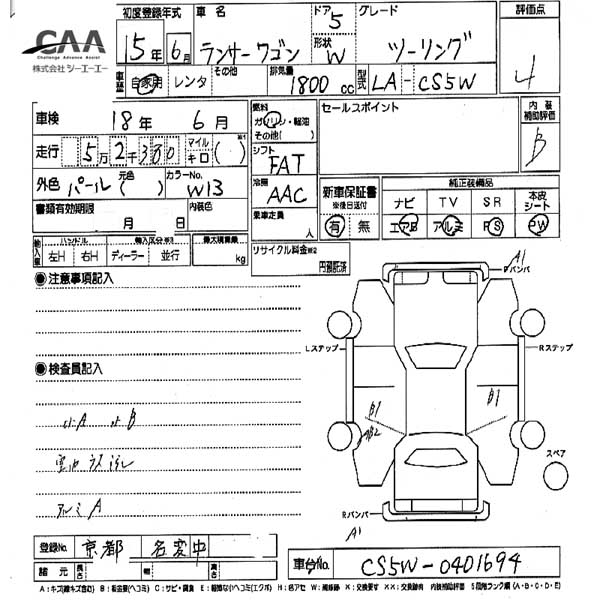 CAA
Challenge Advance Assist
株式会社シーエーエー
初度登録年式 車名 ドア 5 グレード 評価点
15年 6月 ランサーワゴン 形状 W ツーリング 4
車歴 自家用 レンタ その他 排気量 1800 cc 型式 LA-CS5W
車検 18年 6月 燃料 ガソリン・軽油 その他( ) セールスポイント 内装補助評価 B
走行 5万2千380 マイル キロ ( ) シフト FAT
外色 パール 元色 ( ) カラーNo. W13 冷房 AAC 新車保証書 ※後日送付 純正装備品
ナビ TV SR 本皮シート
書類有効期限 月 日 内装色 乗車定員 人 有 無 エアB アルミ PS PW
輸入車 ハンドル 輸入区分※3 最大積載量 リサイクル料金※2
左H 右H ディーラー 並行 kg 円預託済
注意事項記入
A1
Fバンパ
Lステップ Rステップ
検査員記入
B1 B1
小A 小B AB2
スペア
アルミA
Rバンパ
A1
登録No. 京都 名変中 車台No. CS5W-0401694
諸元 長さ 幅 高さ